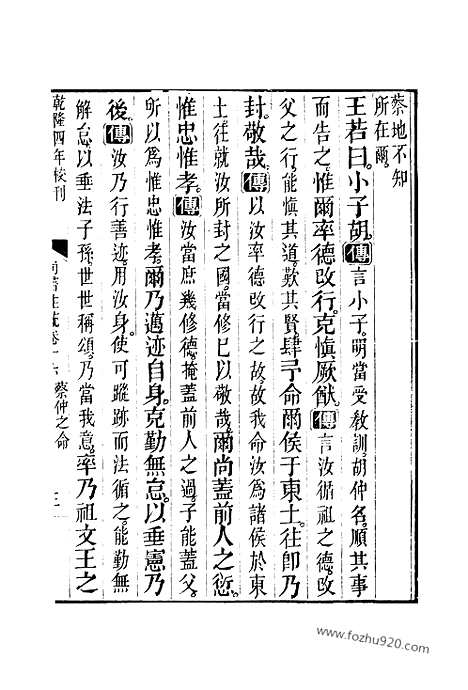 蔡地不知
所在爾
王若曰。小子胡。傳言小子。明當受教訓。胡仲名。順其事
而告之。惟爾率德改行。克愼厥猷。傳言汝循祖之德。改
父之行。能愼其道。歎其賢。肆予命爾侯于東土。往卽乃
封。敬哉。傳以汝率德改行之故。故我命汝爲諸侯於東
土。往就汝所封之國。當修己以敬哉。爾尚蓋前人之愆。
惟忠惟孝。傳汝當庶幾修德。掩蓋前人之過。子能蓋父。
所以爲惟忠惟孝。爾乃邁迹自身。克勤無怠。以垂憲乃
後。傳汝乃行善迹。用汝身。使可蹤跡而法循之。能勤無
解怠。以垂法子孫。世世稱頌。乃當我意。率乃祖文王之
乾隆四年校刊
尚書注疏卷十六 蔡仲之命 三
www.fozhu920.com